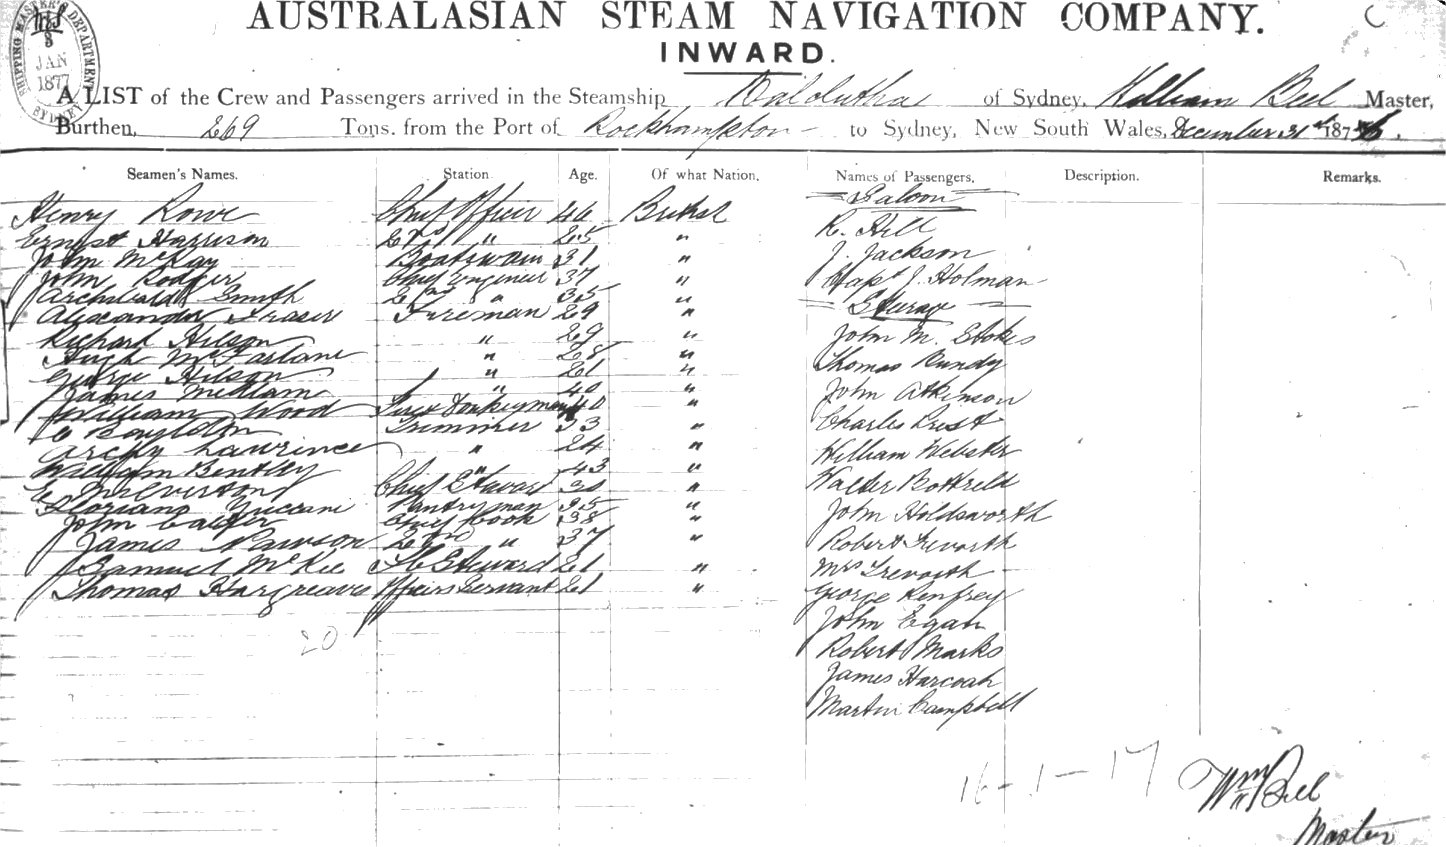 AUSTRALASIAN STEAM NAVIGATION COMPANY.
INWARD.
SHIPPING MASTER'S DEPARTMENT
3
JAN
1877
SYDNEY
A LIST of the Crew and Passengers arrived in the Steamship Balclutha of Sydney, William Bell Master,
Burthen, 269 Tons. from the Port of Rockhampton to Sydney, New South Wales, December 31st 1876.
Seamen's Names. Station Age. Of what Nation. Names of Passengers, Description. Remarks.
Henry Rowe Chief Officer 46 British
Ernest Harrison 2nd " 25 "
John McKay Boatswain 31 "
John Rodger Chief Engineer 37 "
Archibald Smith 2nd " 35 "
Alexander Fraser Fireman 29 "
Richard Hilson " 29 "
Hugh McFarlane " 28 "
George Hilson " 21 "
James Midlam " 40 "
William Wood Firex Donkeyman 40 "
C Boyldon Trimmer 33 "
Archy Laurince " 24 "
William Bentley " 43 "
Chief Steward 30 "
Floriano Pantryman 25 "
John Calfer Chief Cook 38 "
James Pawson 2nd " 37 "
Samuel McKie Steward 21 "
Thomas Hargreave Officers Servant 21 "
20
Saloon
R. Hill
J. Jackson
Capt J. Holman
Sterag
John M. Stokes
Thomas Bundy
John Atkinson
Charles Prest
William Webster
Walter Bottreld
John Holdsworth
Robert Trevorth
Mrs Trevorth
George Renfrey
John Egan
Robert Marks
James Harcoah
Martin Campbell
16-1-17
Wm Bell
Master